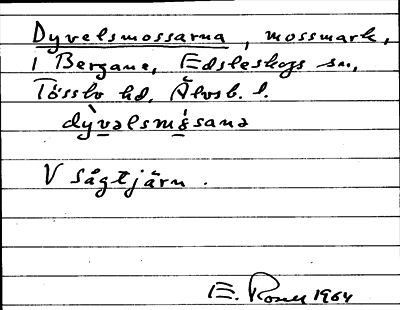 Dyvelsmossarna, mossmark,
i Bergane, Edsleskogs sn,
Tössbo hd, Älvsb. l.
dỳvəlsmósanə
V Sågtjärn.
E. Rosell 1964